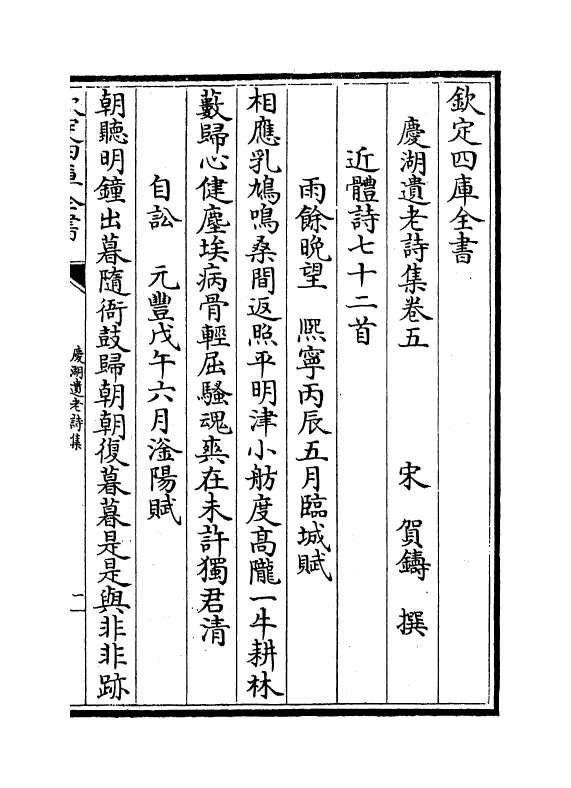 欽定四庫全書
慶湖遺老詩集卷五
宋 賀鑄 撰
近體詩七十二首
雨餘晚望 熈寧丙辰五月臨城賦
相應乳鳩鳴桑間返照平明津小舫度髙隴一牛耕林
藪歸心健塵埃病骨輕屈騷魂爽在未許獨君清
自訟 元豐戊午六月滏陽賦
朝聽明鐘出暮隨衙鼓歸朝朝復暮暮是是與非非跡
慶湖遺老詩集